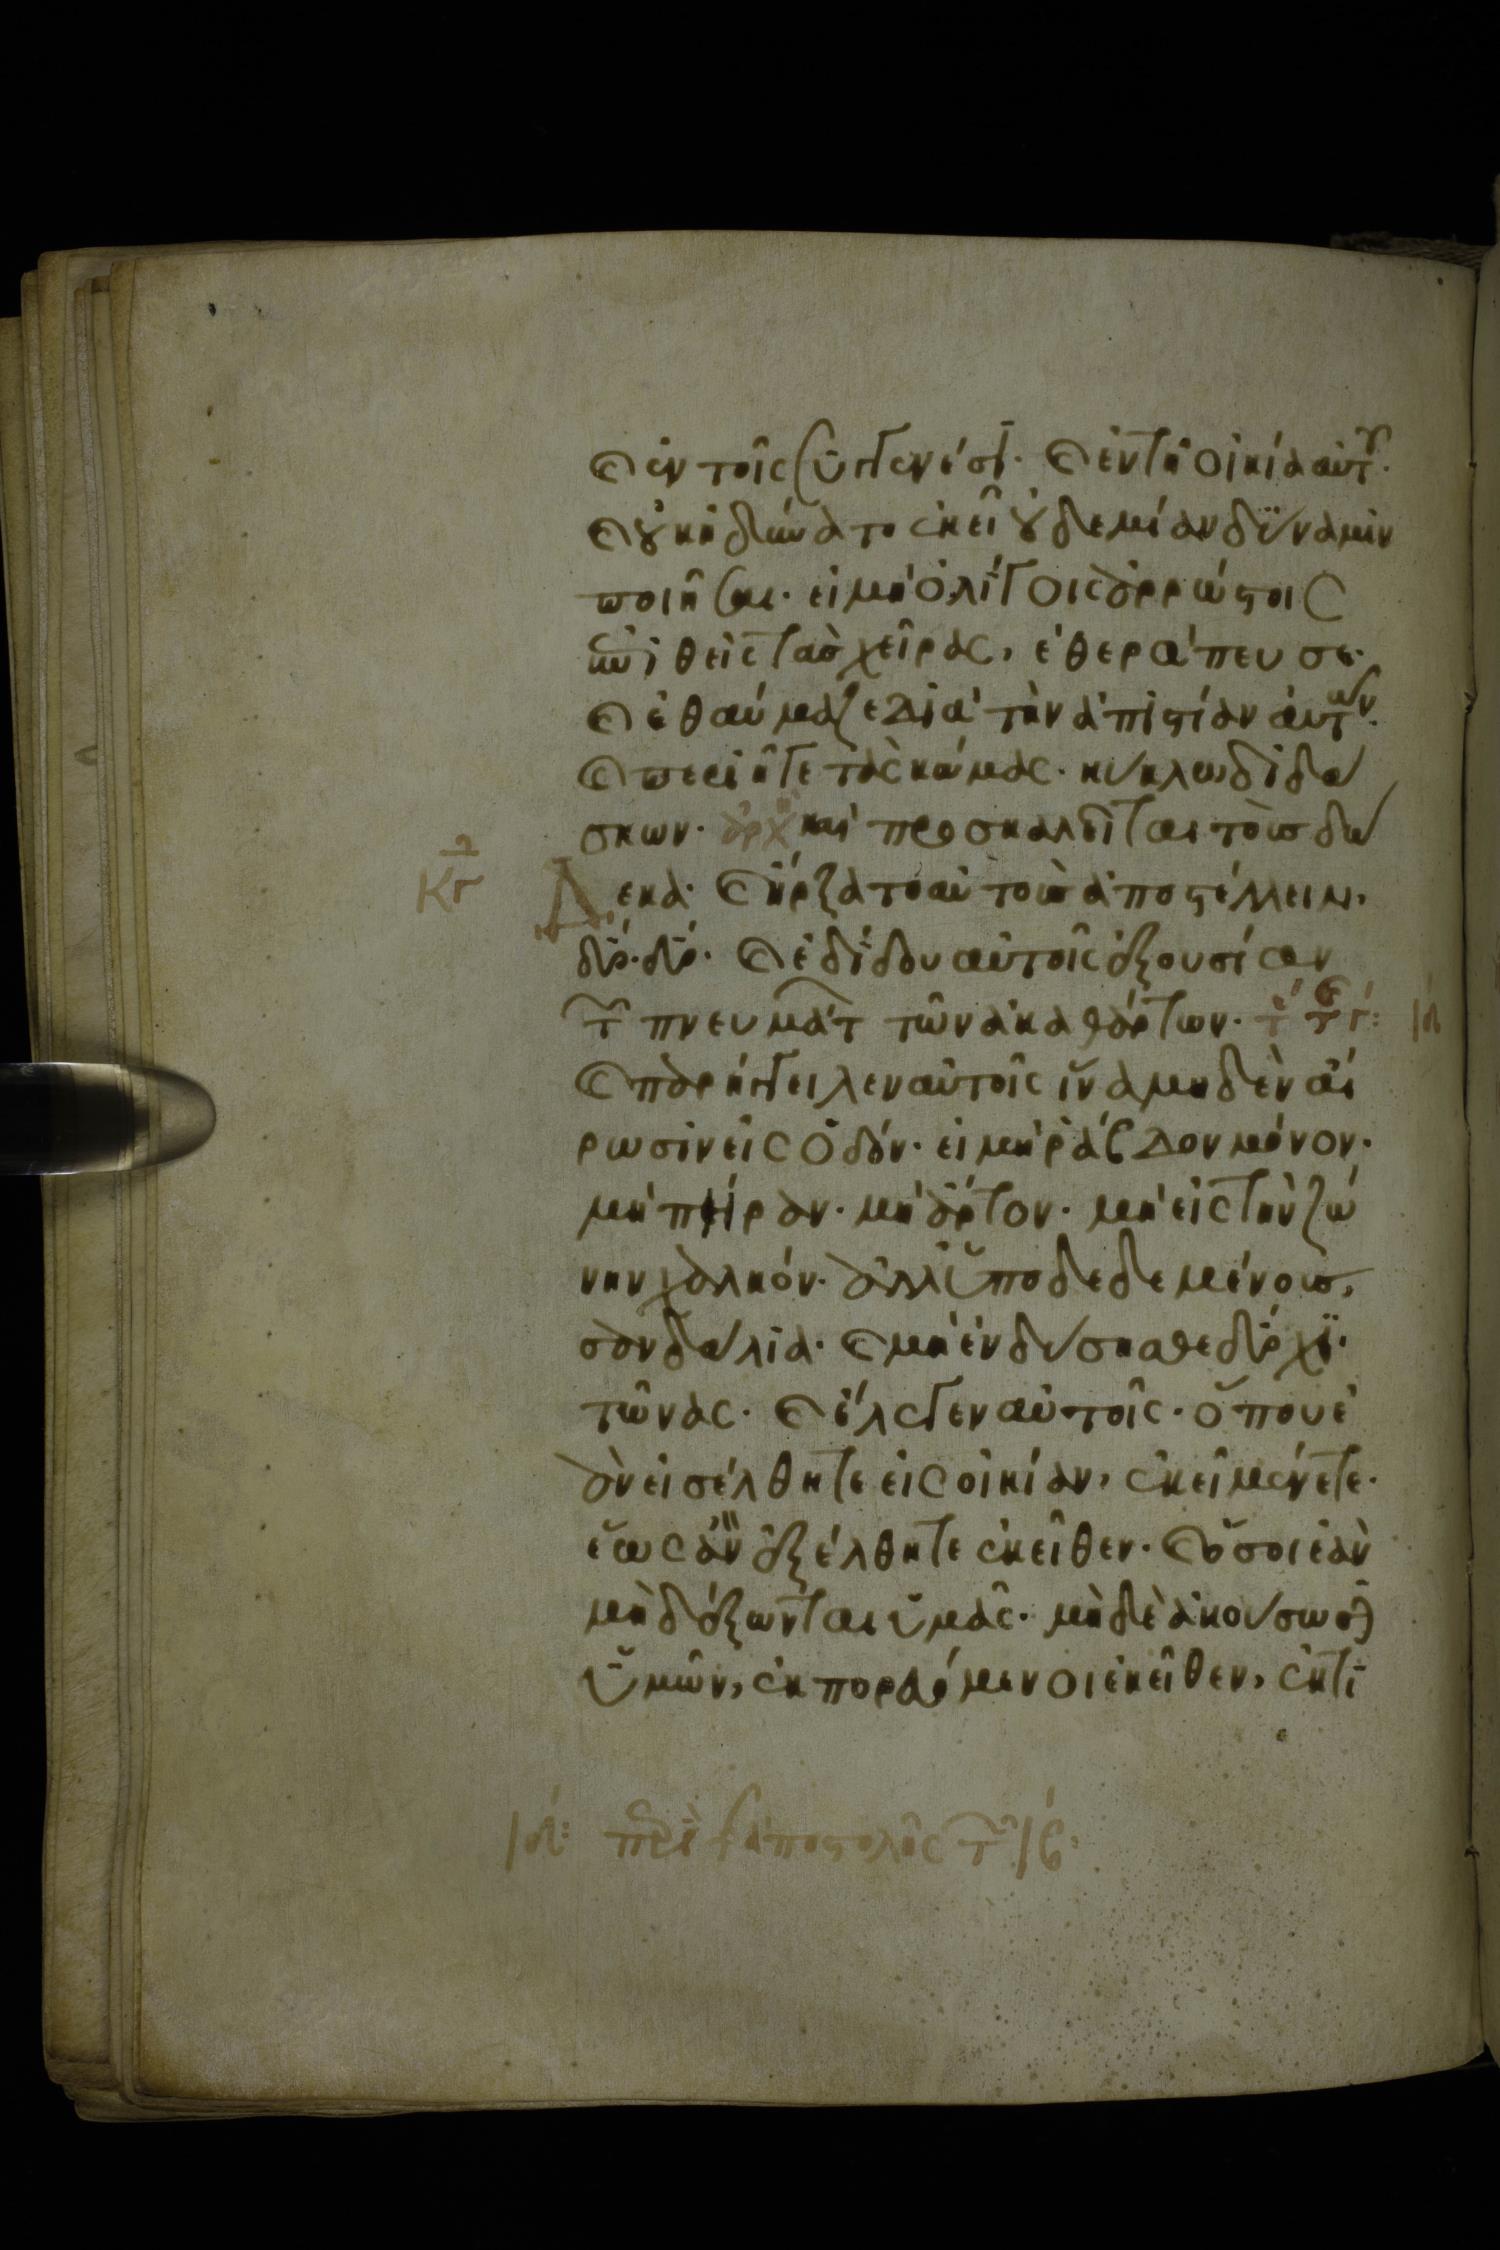 καὶ ἐν τοῖς συγγενέσι· καὶ ἐν τῆ οἰκία αὐτοῦ·
καὶ οὐκ ἠδύνατο ἐκεῖ οὐδεμίαν δύναμιν
ποιῆσαι· εἰ μὴ ὀλίγοις ἀρρώστοις
ἐπιθεὶς τὰς χεῖρας, ἐθεράπευσε·
καὶ ἐθαύμαζε διὰ τὴν ἀπιστίαν αὐτῶν·
καὶ περιῆγε τὰς κώμας· κύκλω διδά
σκων· ἀρχ καὶ προσκαλεῖται τοὺς δώ
Κγ Δεκα· καὶ ἤρξατο αὐτοὺς ἀποστέλλειν,
δύο· δύο· καὶ ἐδίδου αὐτοῖς ἐξουσίαν
τῶν πνευμάτ τῶν ἀκαθάρτων·
καὶ παρήγγειλεν αὐτοῖς ἵνα μηδὲν αἴ
ρωσιν εἰς ὁδόν· εἰ μὴ ῥάβδον μόνον·
μὴ πήραν· μὴ ἄρτον· μὴ εἰς τὴν ζώ
νην χαλκόν· ἀλλ' ὑποδεδεμένους,
σανδάλια· καὶ μὴ ἐνδύσησθε δύο χϊ
τῶνας· καὶ ἔλεγεν αὐτοῖς· ὅπου ἐ
ὰν εἰσέλθητε εἰς οἰκίαν, ἐκεῖ μένετε·
ἕως ἂν ἐξέλθητε ἐκεῖθεν· καὶ ὅσοι ἐὰν
μὴ δέξωνται ὑμᾶς· μὴ δὲ ἀκούσωσιν
ὑμῶν, ἐκπορευόμενοι ἐκεῖθεν, ἐκτι
ιδ: περὶ τῆς ἀποστολῆς τῶν ιβ: